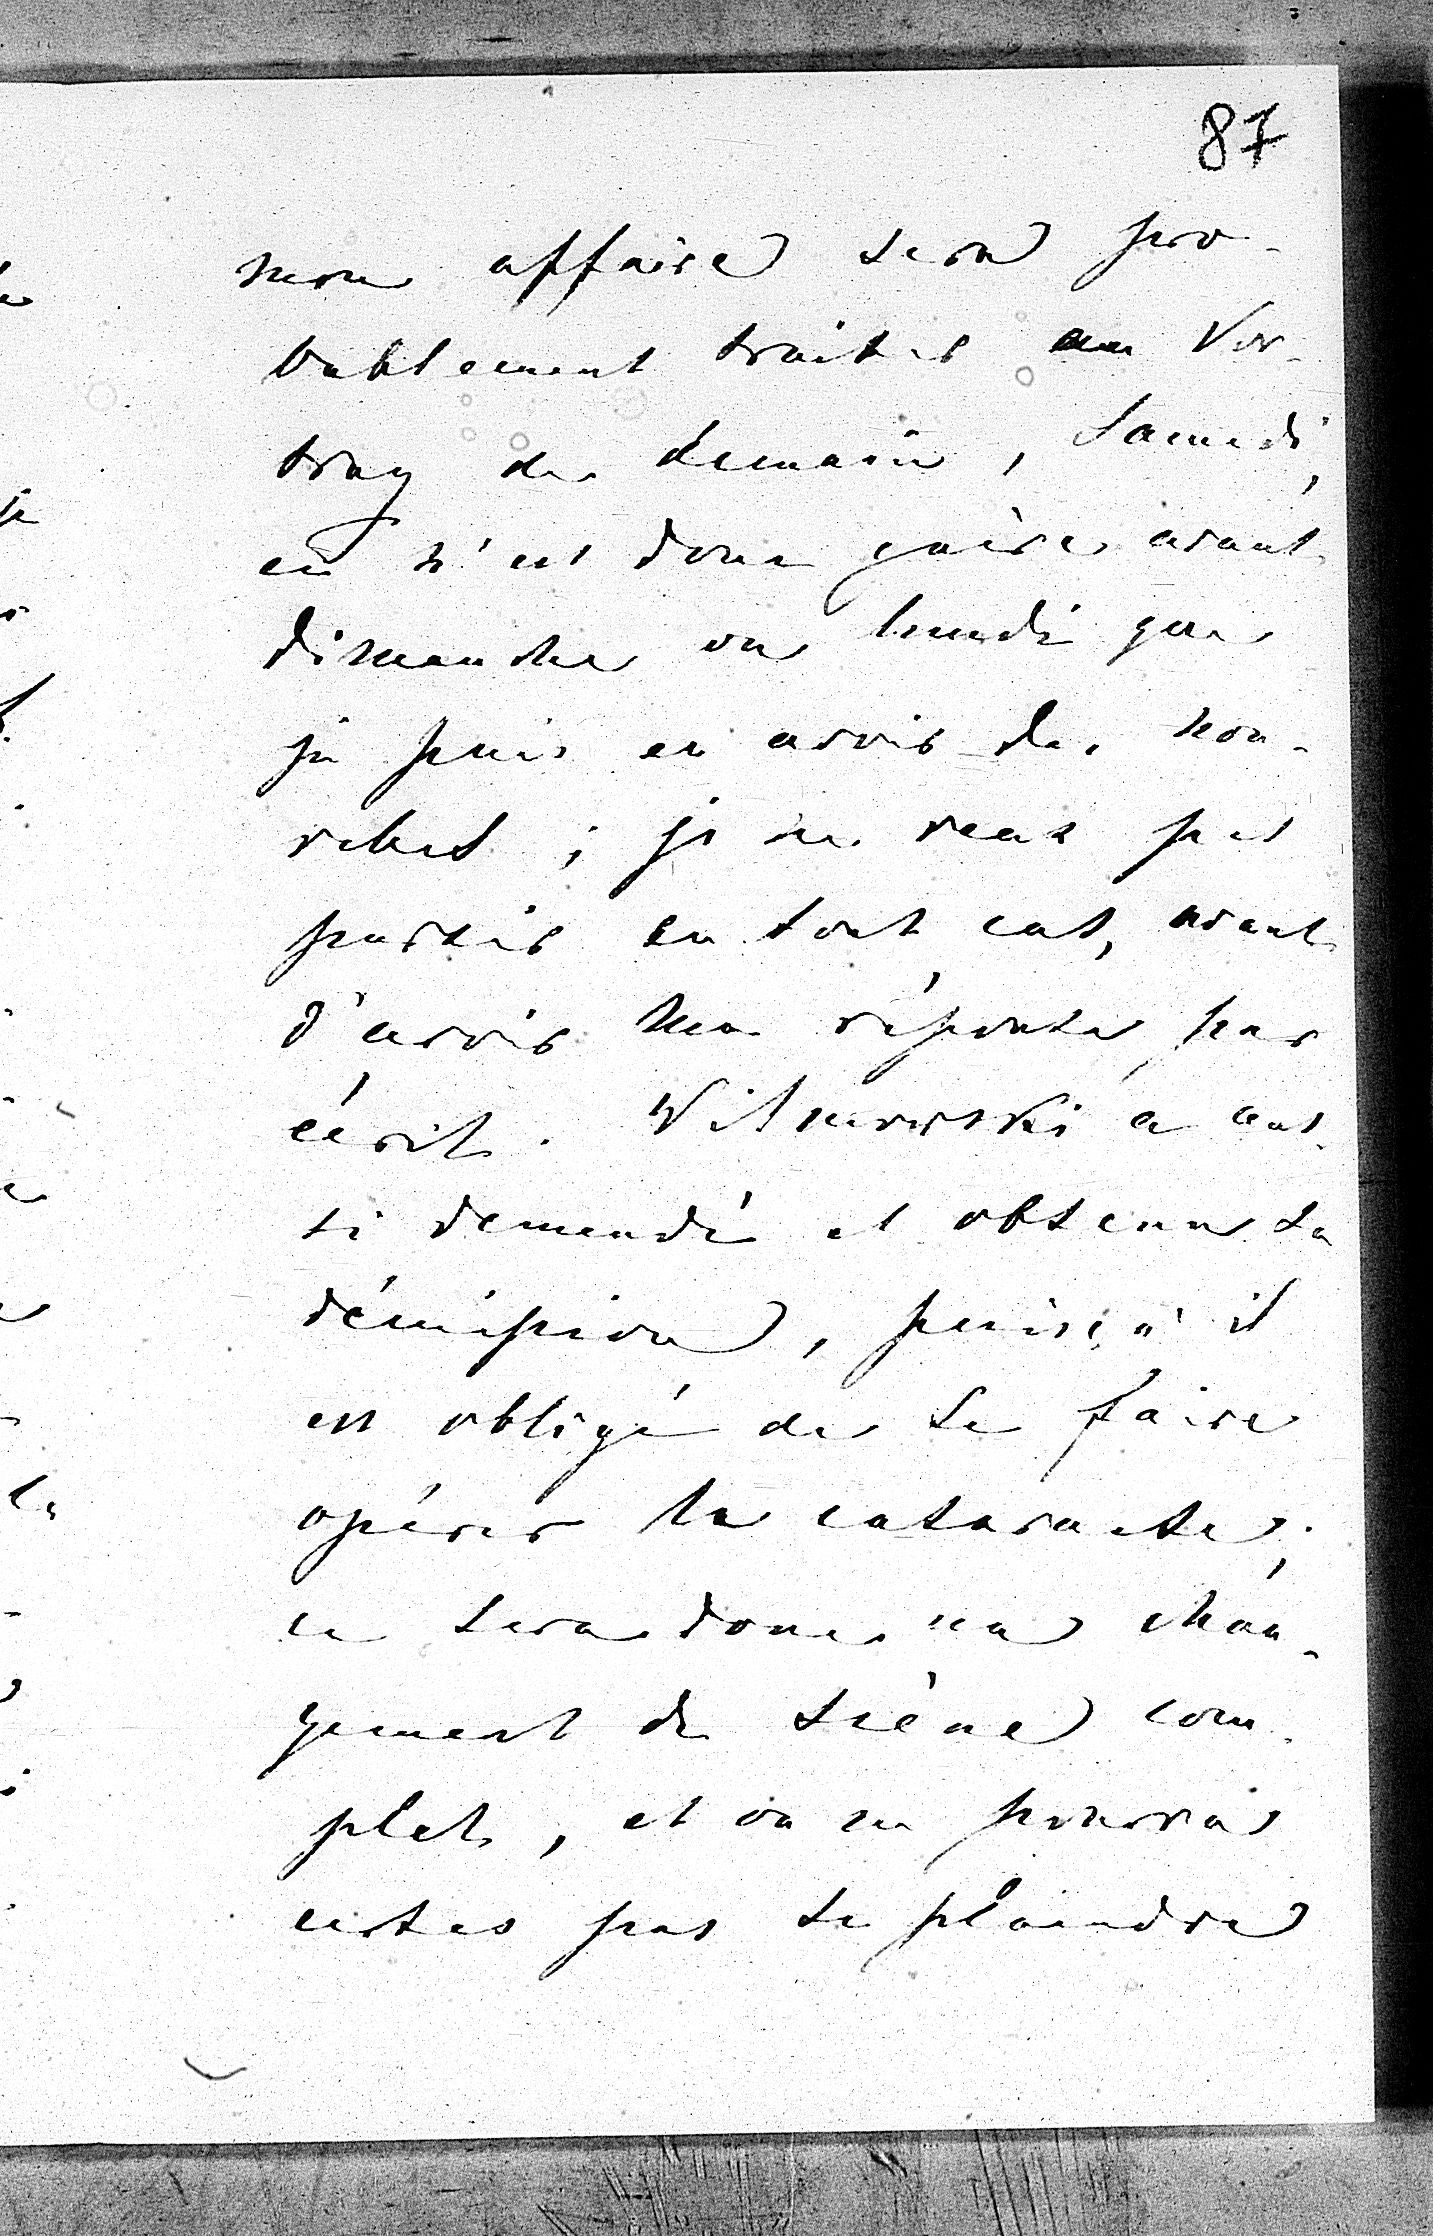 87
mon affaire sera pro-
bablement traitée au Vor-
trag de demain, Samedi,
ce n'est donc guère avant
dimanche ou lundi que
je puis en avoir des nou-
velles ; je ne veux pas
partir en tout cas, avant
d'avoir une réponse par
écrit. Witkowski a aus-
si demandé et obtenu sa
démission, puisqu'il
est obligé de se faire
opérer la cataracte ;
ce sera donc un chan-
gement de scène com-
plet, et on ne pourra
certes pas se plaindre